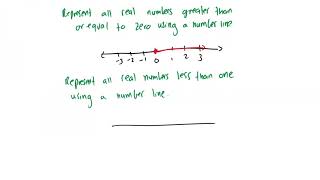 Represent all real numbers greater than
or equal to zero using a number line
-3 -2 -1 0 1 2 3
Represent all real numbers less than one
using a number line.